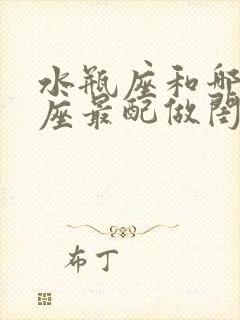 水瓶座和哪
座最配做闺
布丁